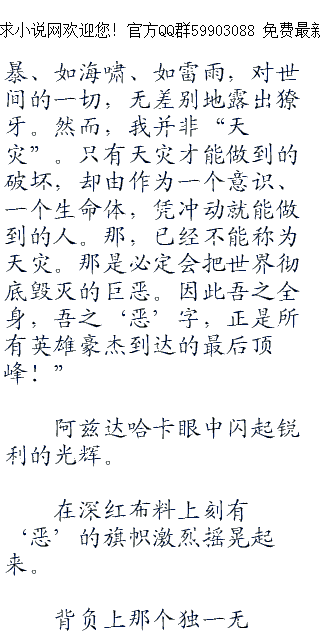 求小说网欢迎您！官方QQ群59903088 免费最新
暴、如海啸、如雷雨，对世
间的一切，无差别地露出獠
牙。然而，我并非“天
灾”。只有天灾才能做到的
破坏，却由作为一个意识、
一个生命体，凭冲动就能做
到的人。那，已经不能称为
天灾。那是必定会把世界彻
底毁灭的巨恶。因此吾之全
身，吾之‘恶’字，正是所
有英雄豪杰到达的最后顶
峰！”
阿兹达哈卡眼中闪起锐
利的光辉。
在深红布料上刻有
‘恶’的旗帜激烈摇晃起
来。
背负上那个独一无